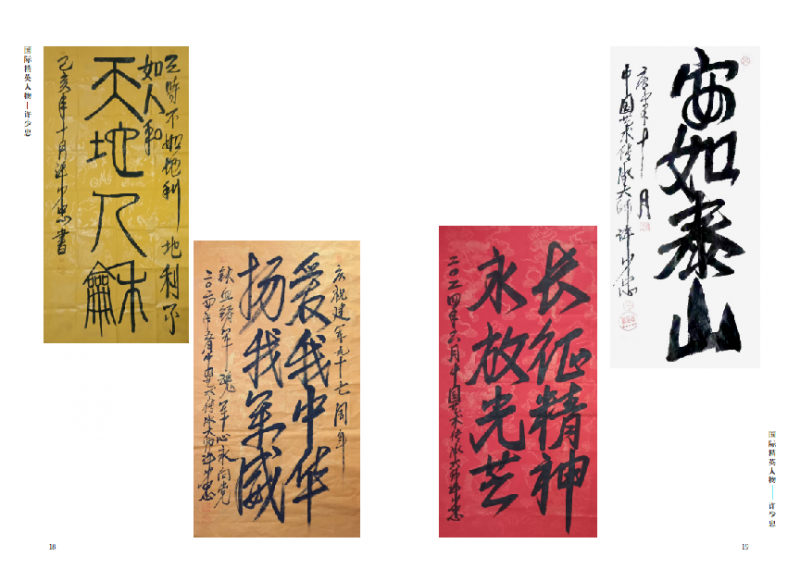 国际精英人物——许少忠
天时不如地利 地利不
如人和
天地人龢
己亥年十月许少忠書
庆祝建军九十七周年
爱我中华
扬我军威
军心永向党
中国艺术传承大师许少忠
18
安如泰山
年十月
中国艺术传承大师 许少忠
长征精神
永放光芒
二〇二四年六月中国艺术传承大师许少忠
国际精英人物——许少忠
19